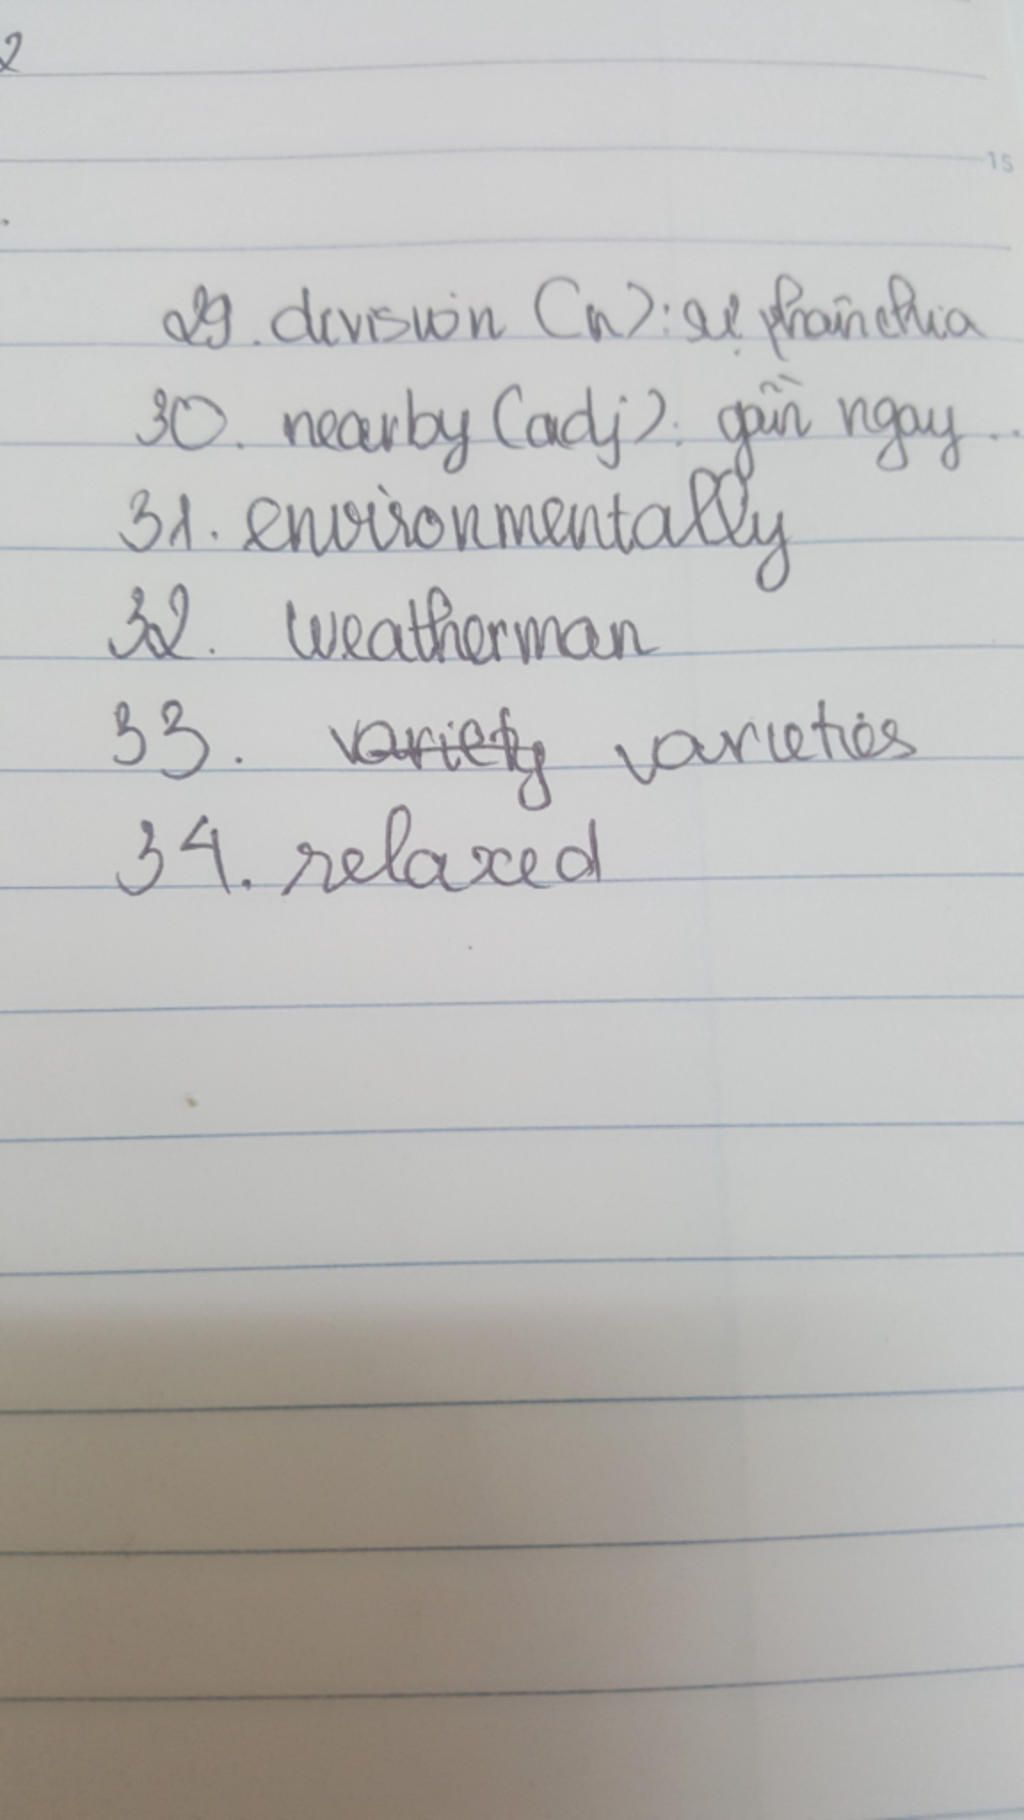 2
15
29. division (n): sự phân chia
30. nearby (adj): gần ngay..
31. environmentally
32. weatherman
33. variety varieties
34. relaxed